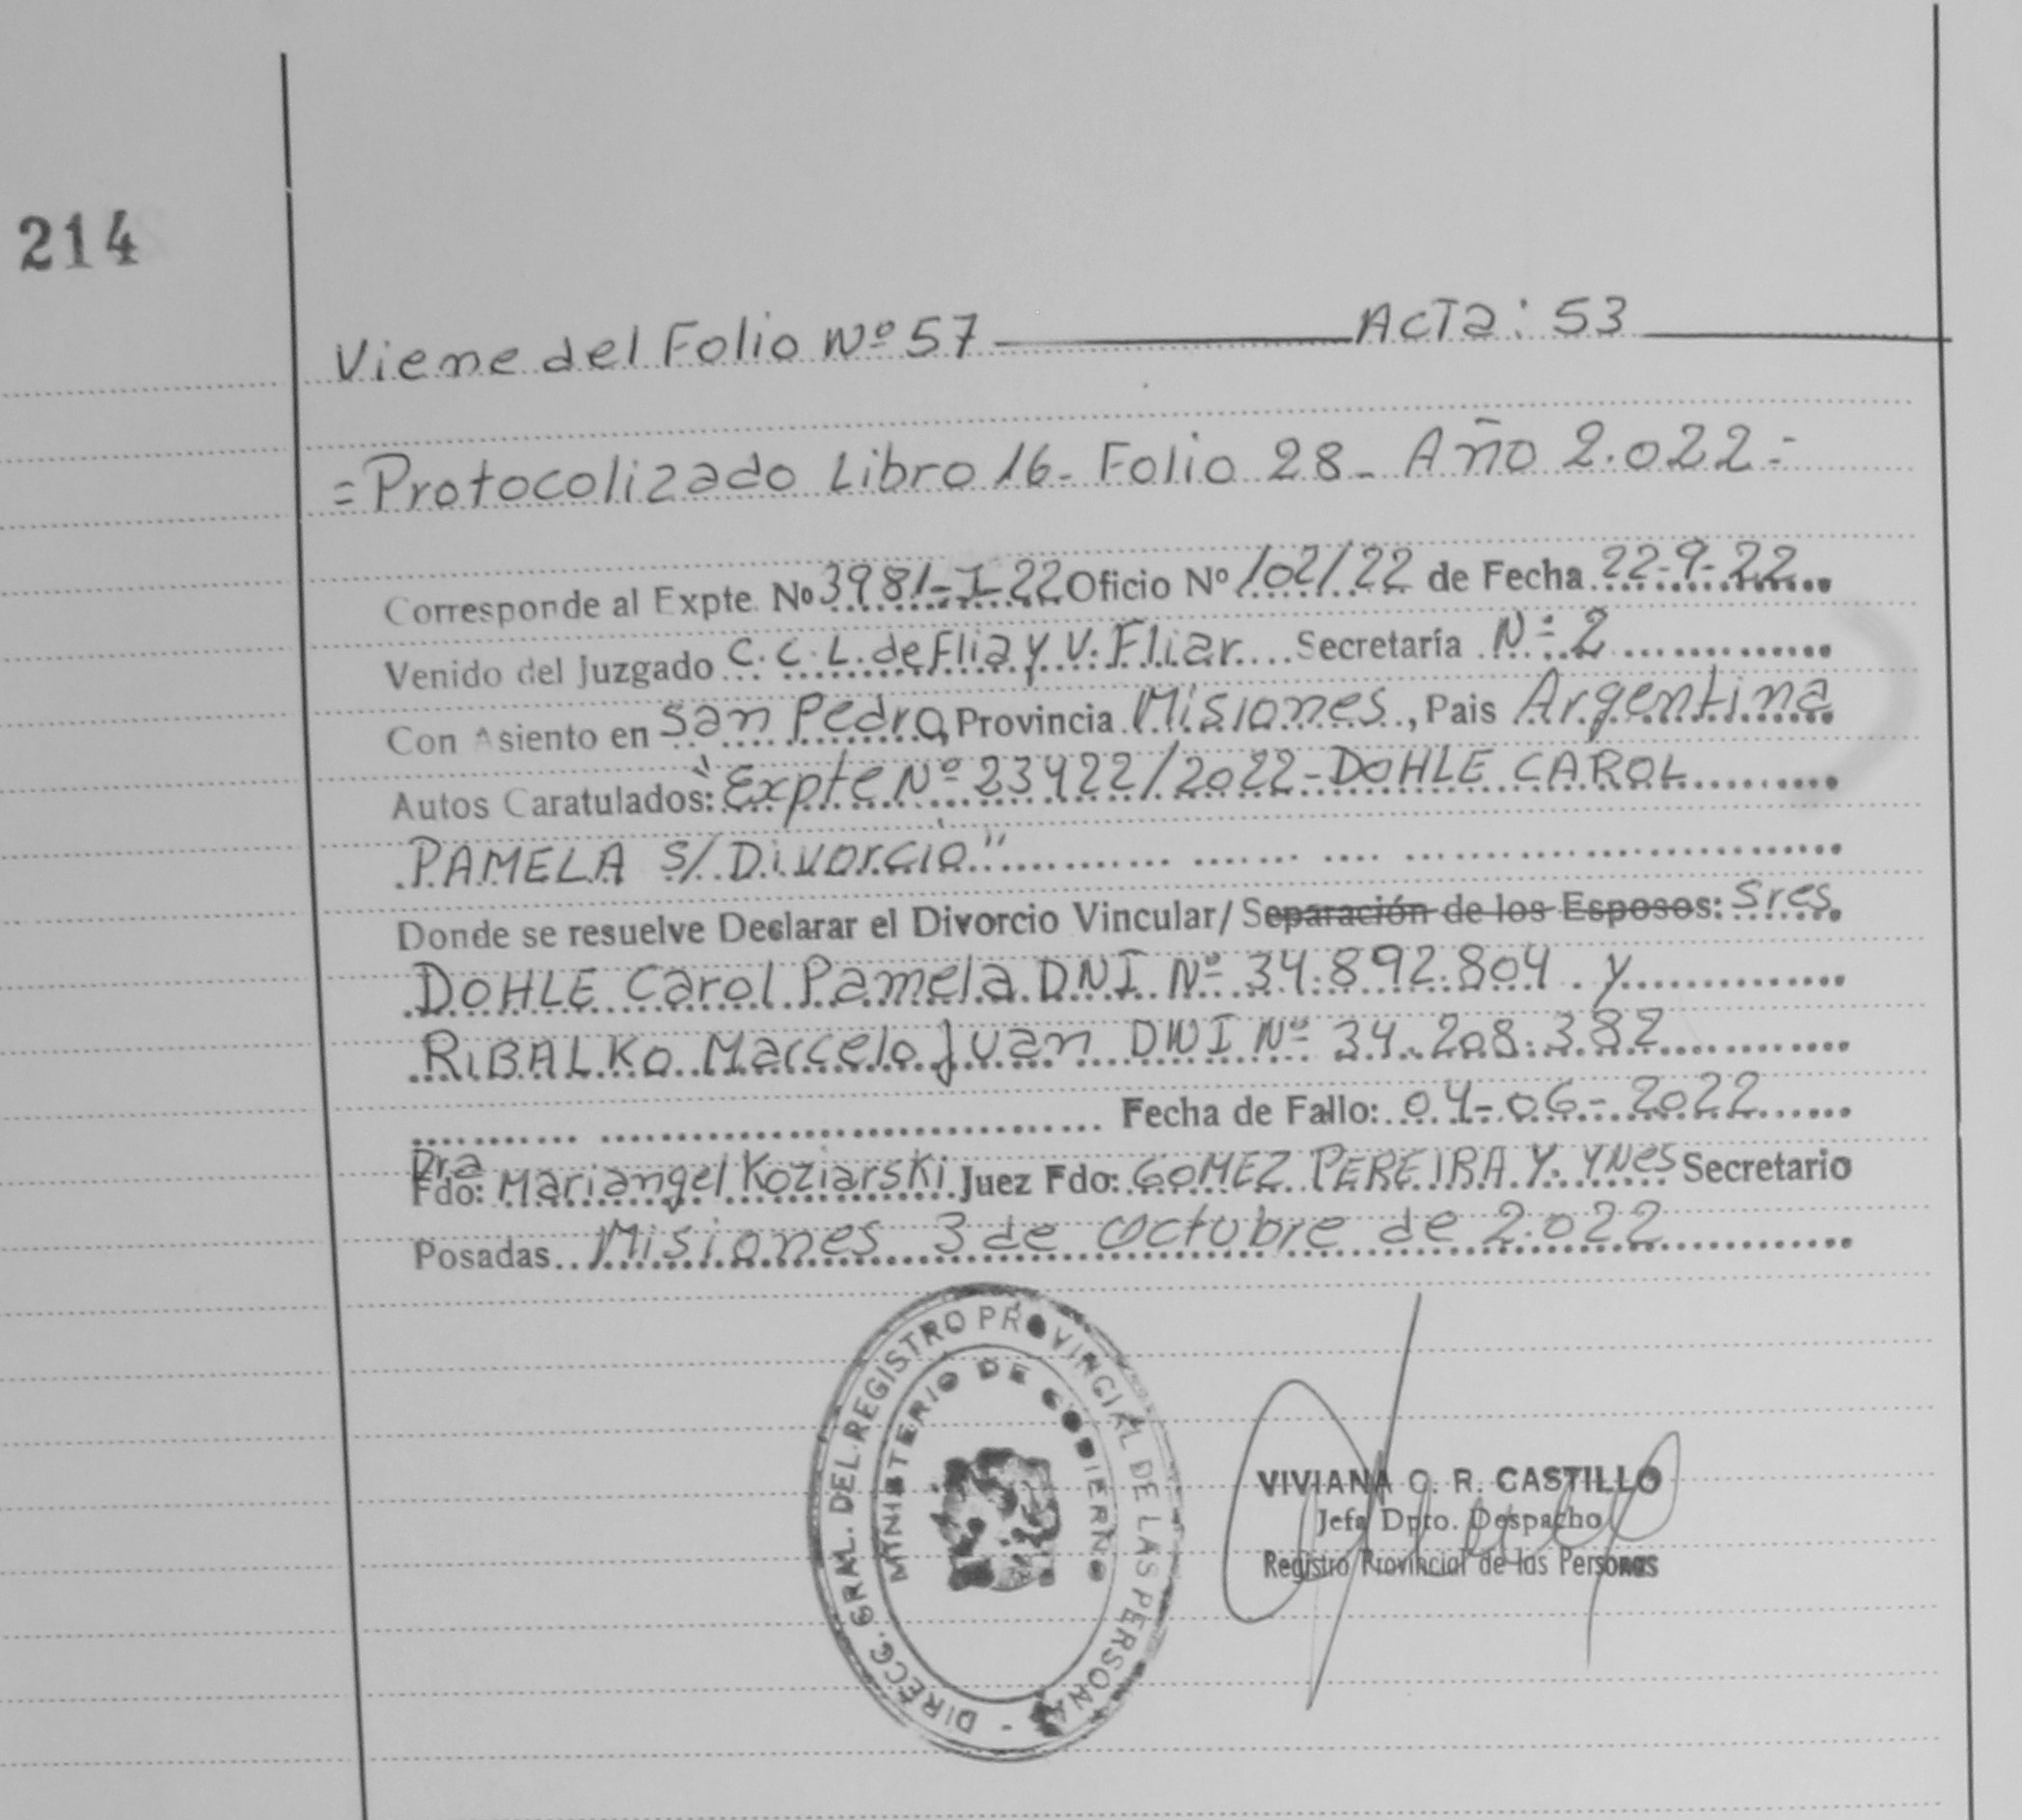 214
Viene del Folio Nº 57 ACTA: 53
=Protocolizado Libro 16- Folio 28- Año 2.022=
Corresponde al Expte. No 3981-I-22 Oficio Nº 102/22 de Fecha 22-9-22
Venido del Juzgado C.C.L. de Flia y V. Fliar. Secretaría Nº 2
Con Asiento en San Pedro, Provincia Misiones, Pais Argentina
Autos Caratulados: "Expte Nº 23422/2022-DOHLE CAROL
PAMELA S/ Divorcio"
Donde se resuelve Declarar el Divorcio Vincular/ Separación de los Esposos: Sres.
DOHLE Carol Pamela DNI Nº 34.892.804 y
RIBALKO Marcelo Juan DNI Nº 34.208.382
Fecha de Fallo: 04-06-2022
Dra
Fdo: Mariangel Koziarski Juez Fdo: GOMEZ PEREIRA Y. YNes Secretario
Posadas Misiones 3 de octubre de 2.022
DIRECC. GRAL. DEL REGISTRO PROVINCIAL DE LAS PERSONAS -
MINISTERIO DE GOBIERNO
VIVIANA C. R. CASTILLO
Jefa Dpto. Despacho
Registro Provincial de las Personas